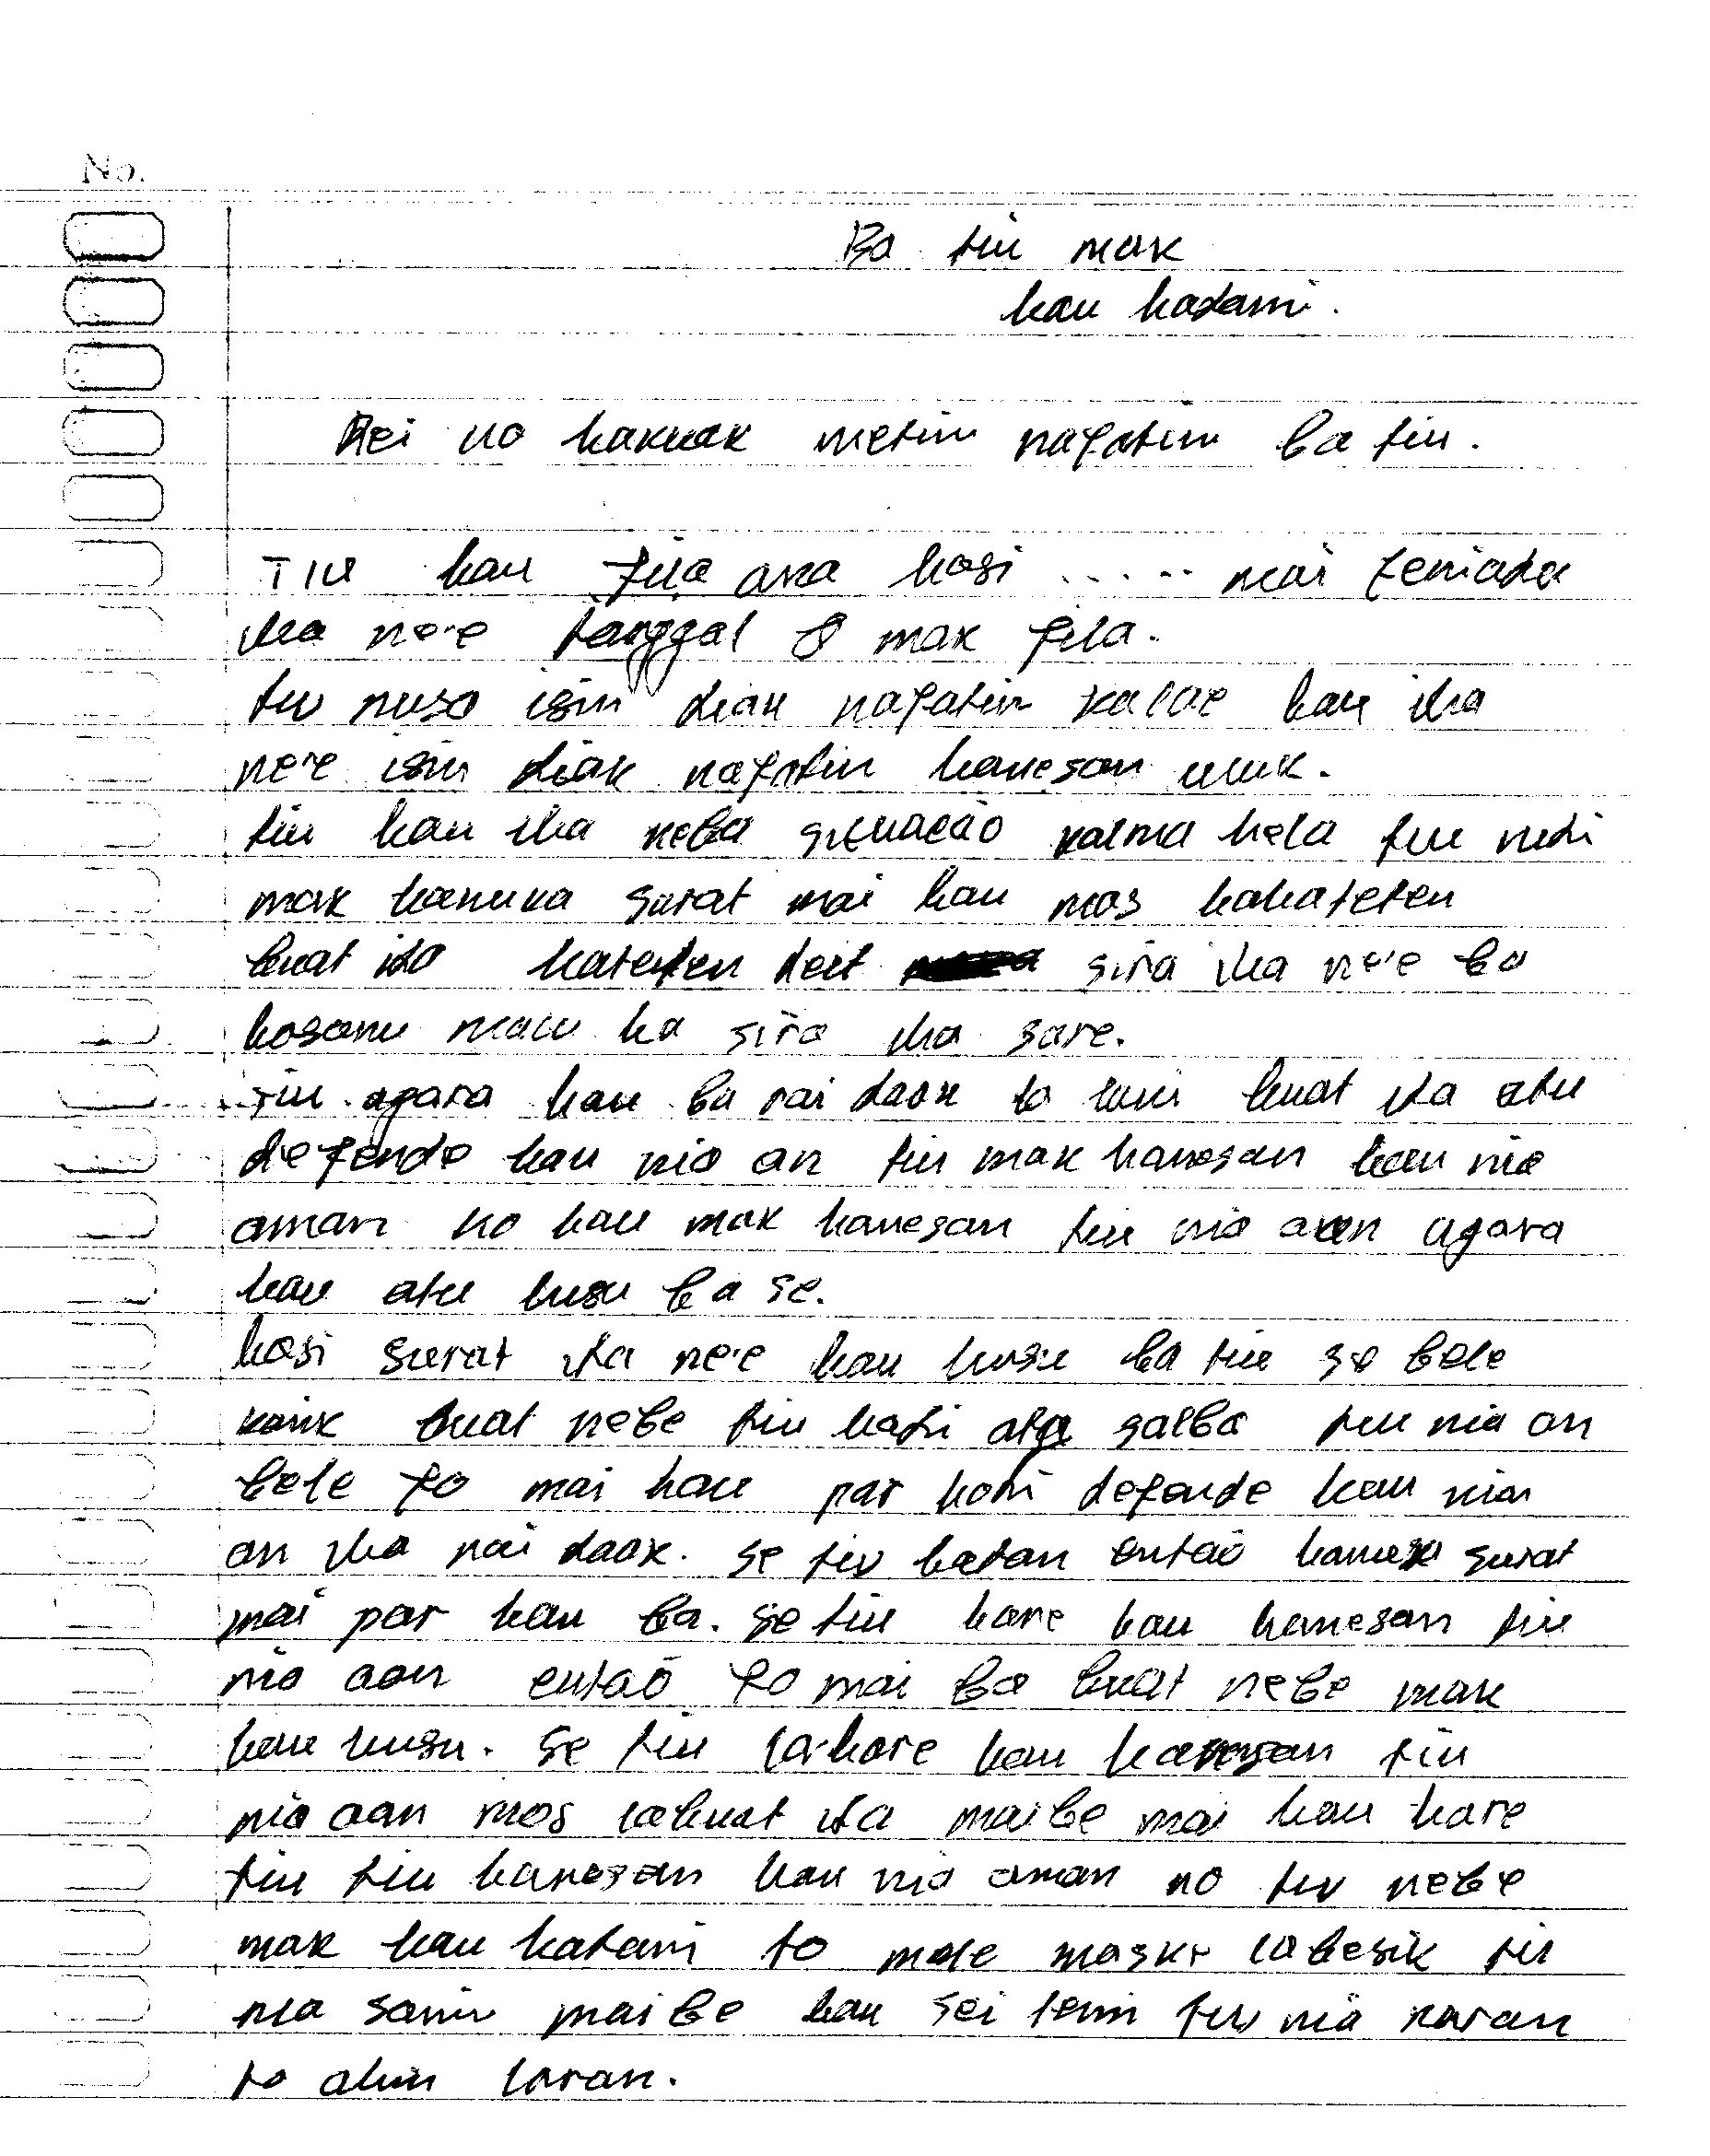 No.
Ba tiu mak
hau hadomi.
Rei no hakuak metin nafatin ba tiu.
Tiu hau fila ona hosi ..... mai
iha ne'e tanggal 8 mak fila.
tiu nusa isin diak nafatin kalae hau iha
ne'e isin diak nafatin hanesan uluk.
tiu hau iha neba situação kalma hela tiu
mak haruka surat mai hau mos hakateten
buat ida hateten deit sira iha ne'e ba
hosanu malu ha sira iha sare.
Tiu agara hau ba rai dook to buat ida atu
defende hau nia an tiu mak hanesan hau nia
aman no hau mak hanesan tiu nia oan agara
hau atu husu ba se.
hosi surat ida ne'e hau husu ba tiu se bele
karik buat nebe tiu hodi atu salba tiu nia an
bele fo mai hau par hodi defende hau nia
an iha rai dook. se tiu hatan então haruka surat
mai par hau ba. se tiu hare hau hanesan tiu
nia oan então fo mai ba buat nebe mak
hau husu. se tiu la hare hau hanesan tiu
nia oan mos labuat ida maibe mai hau hare
tiu tiu hanesan hau nia aman no tiu nebe
mak hau hadomi to mate maske labesik tiu
nia sorin maibe hau sei temi tiu nia naran
to ahin loran.